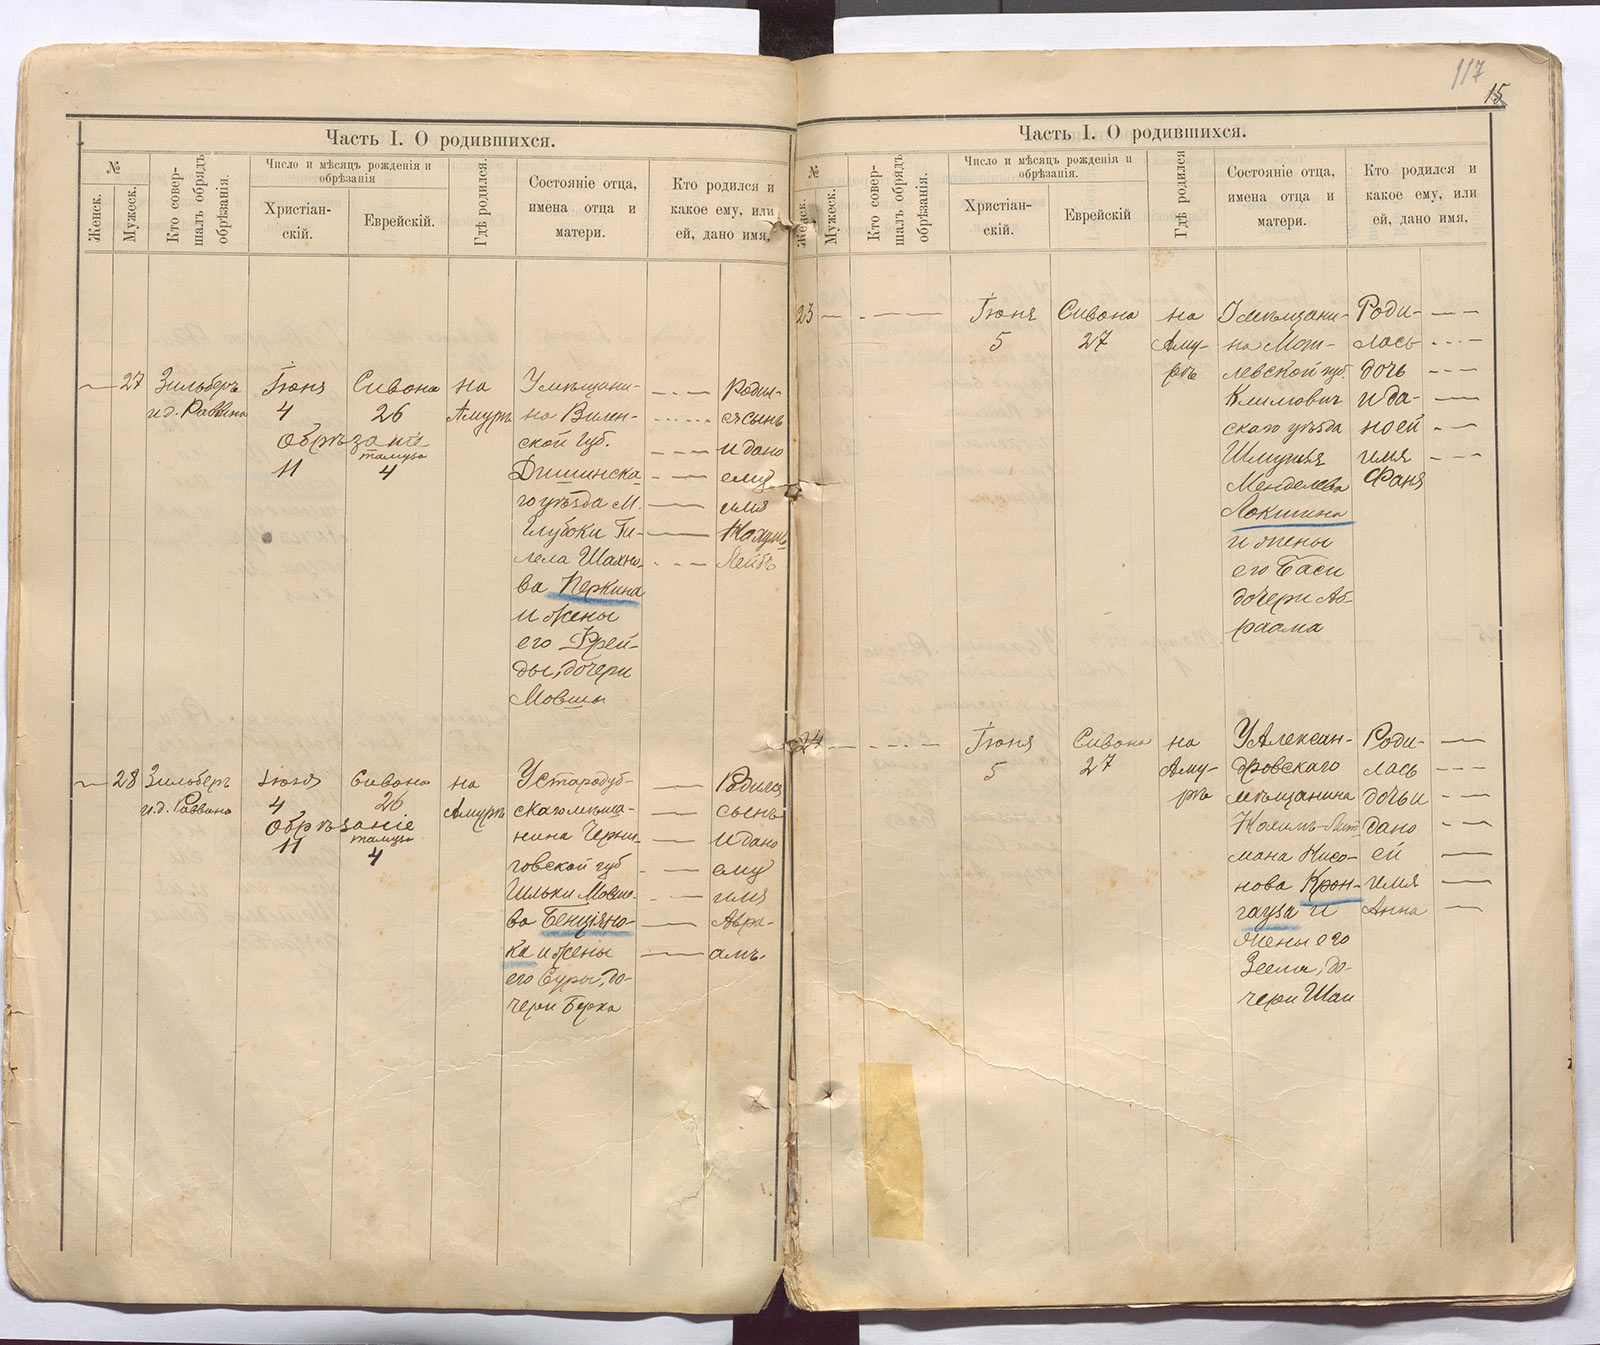 117
15
Часть I. О родившихся.
№
Женск.
Мужеск.
Кто совер-
шалъ обрядъ
обрѣзанія.
Число и мѣсяцъ рожденія и
обрѣзанія
Христіан-
скій.
Еврейскій.
Гдѣ родился.
Состояніе отца,
имена отца и
матери.
Кто родился и
какое ему, или
ей, дано имя.
27
Зильберъ
и.д. Раввина
Іюня
4
Обрѣзаніе
11
Сивона
26
тамуза
4
на
Амурѣ
У мѣщани-
на Вилен-
ской губ.
Дисинска-
го уѣзда м.
Глубоки Ги-
лела Шахно-
ва Перкина
и жены
его Фрей-
ды, дочери
Мовши
Родил-
ся сынъ
и дано
ему
имя
Лейбъ
28
Зильберъ
и.д. Раввина
Іюня
4
Обрѣзаніе
11
Сивона
26
тамуза
4
на
Амурѣ
У Стародуб-
скаго мѣща-
нина Черни-
говской губ
Ильки Мовшо-
ва
ка и жены
его Суры, до-
чери Берка
Родился
сынъ
и дано
ему
имя
Авра-
амъ.
Часть I. О родившихся.
№
Женск.
Мужеск.
Кто совер-
шалъ обрядъ
обрѣзанія.
Число и мѣсяцъ рожденія и
обрѣзанія.
Христіан-
скій.
Еврейскій
Гдѣ родился
Состояніе отца,
имена отца и
матери.
Кто родился и
какое ему, или
ей, дано имя.
23
Іюня
5
Сивона
27
на
Аму-
рѣ
У мѣщани-
на Мог-
левской губ.
Климович
скаго уѣзда
Шмуйля
Менделева
Локшина
и жены
его Баси
дочери Аб-
раама
Роди-
лась
дочь
и да-
но ей
имя
Фаня
24
Іюня
5
Сивона
27
на
Аму-
рѣ
У Алексан-
дровскаго
мѣщанина
мана Нисо-
нова Крон-
гауза и
жены его
Зеелы, до-
чери Шаи
Роди-
лась
дочь и
дано
ей
имя
Анна